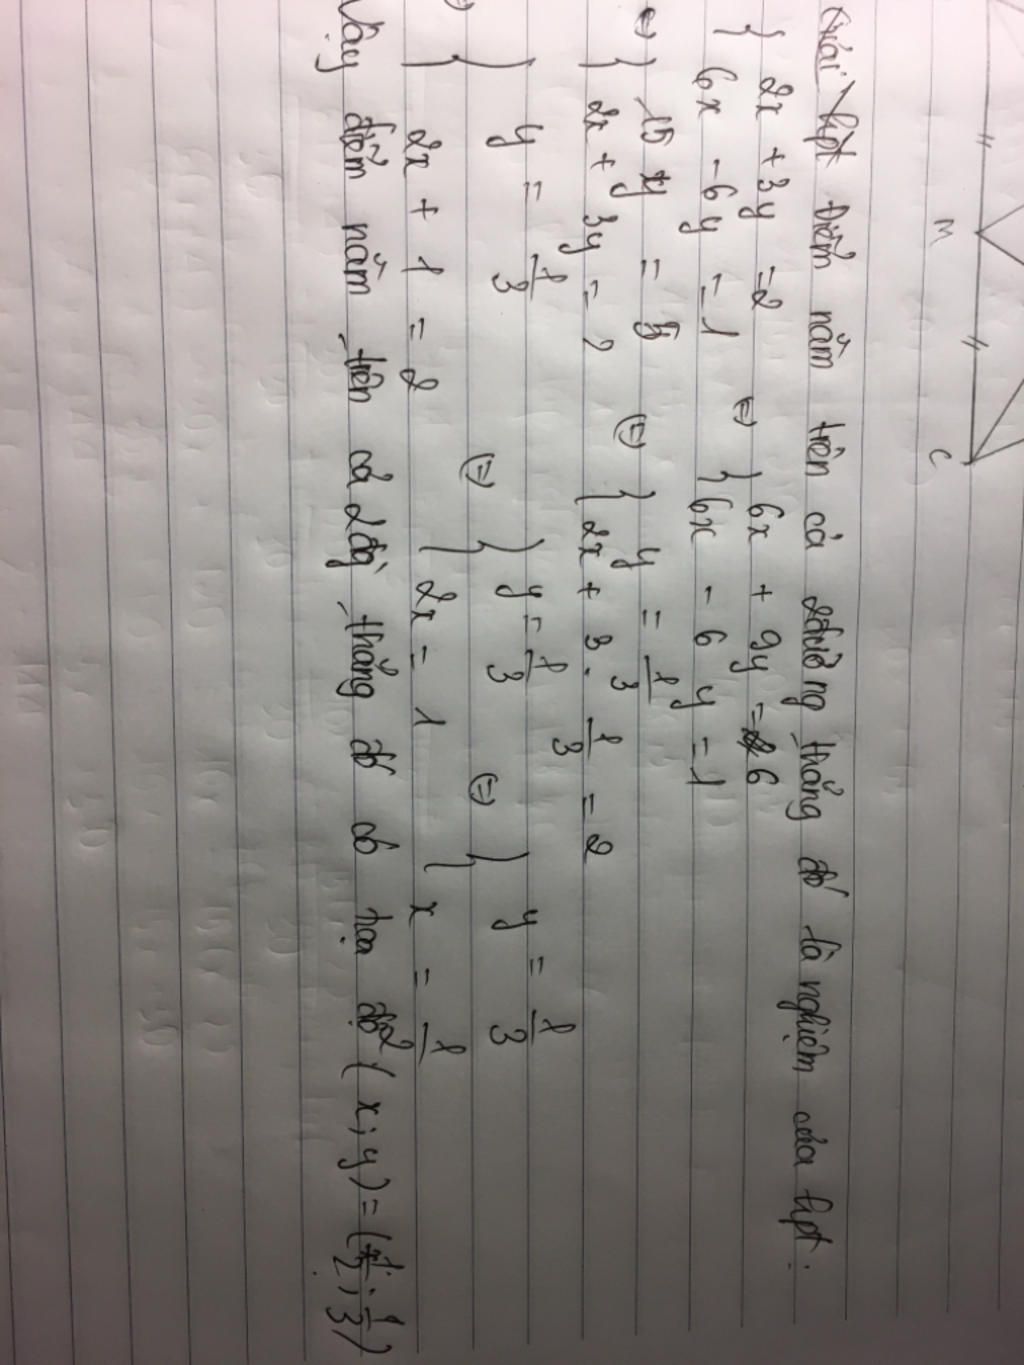 M C
Giải hpt điểm nằm trên cả 2 đường thẳng đó là nghiệm của hpt:
{ 2x + 3y = 2 ⇔ { 6x + 9y = 6
6x - 6y = 1 6x - 6y = 1
⇔ { 15y = 5 ⇔ { y = 1/3
2x + 3y = 2 2x + 3 . 1/3 = 2
{ y = 1/3 ⇔ { y = 1/3 ⇔ { y = 1/3
2x + 1 = 2 2x = 1 x = 1/2
Vậy điểm nằm trên cả 2 đg thẳng đó có tọa độ (x; y) = (1/2; 1/3)